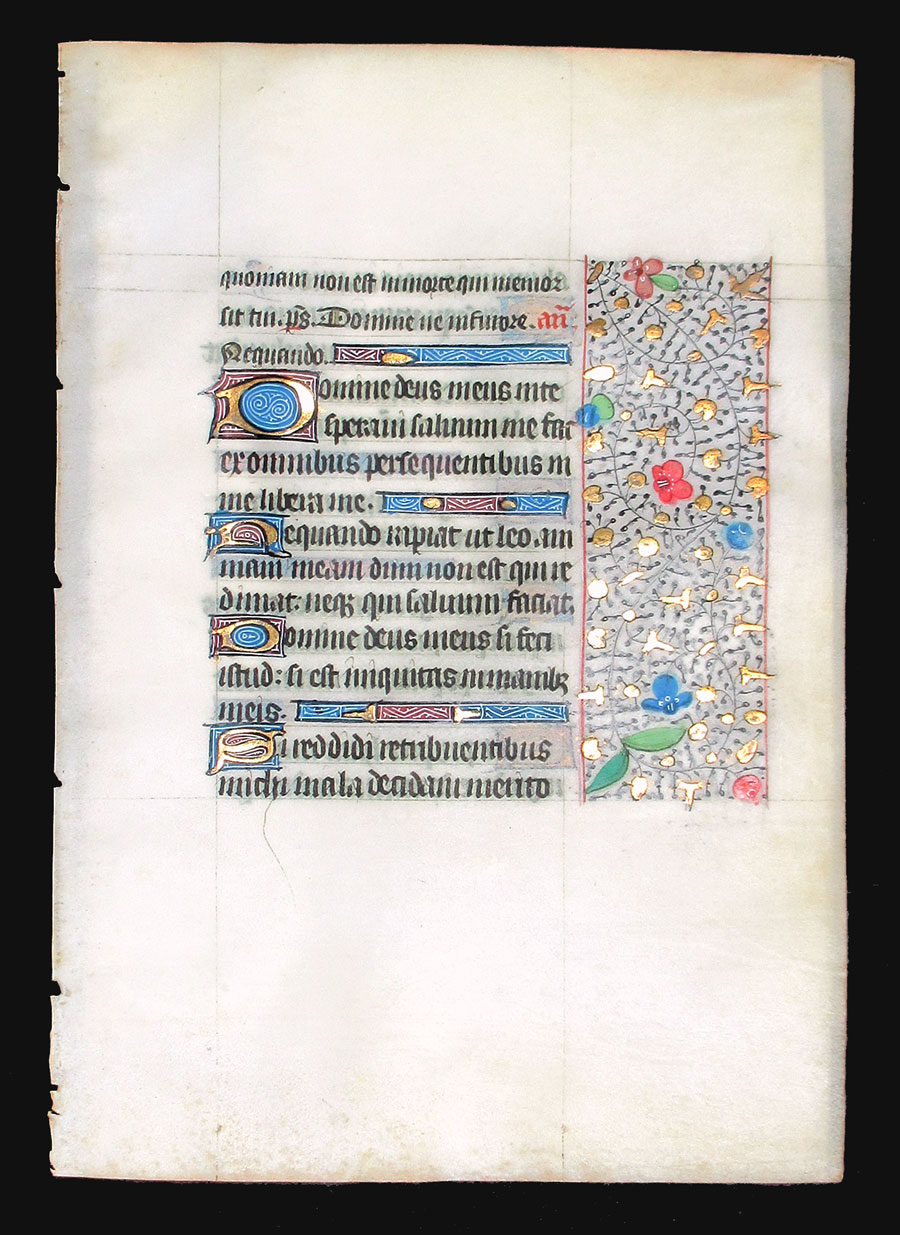 quoniam non est in morte qui memor
sit tui. ps. Domine ne in furore. an̄.
Nequando.
Domine deus meus in te
speravi salvum me fac
ex omnibus persequentibus m
me libera me.
Nequando rapiat ut leo. am
mam meam dum non est qui re
dimat. neqʒ qui salvum faciat.
Domine deus meus si feci
istud: si est iniquitas in manibʒ
meis.
Si reddidi retribuentibus
michi mala decidam merito